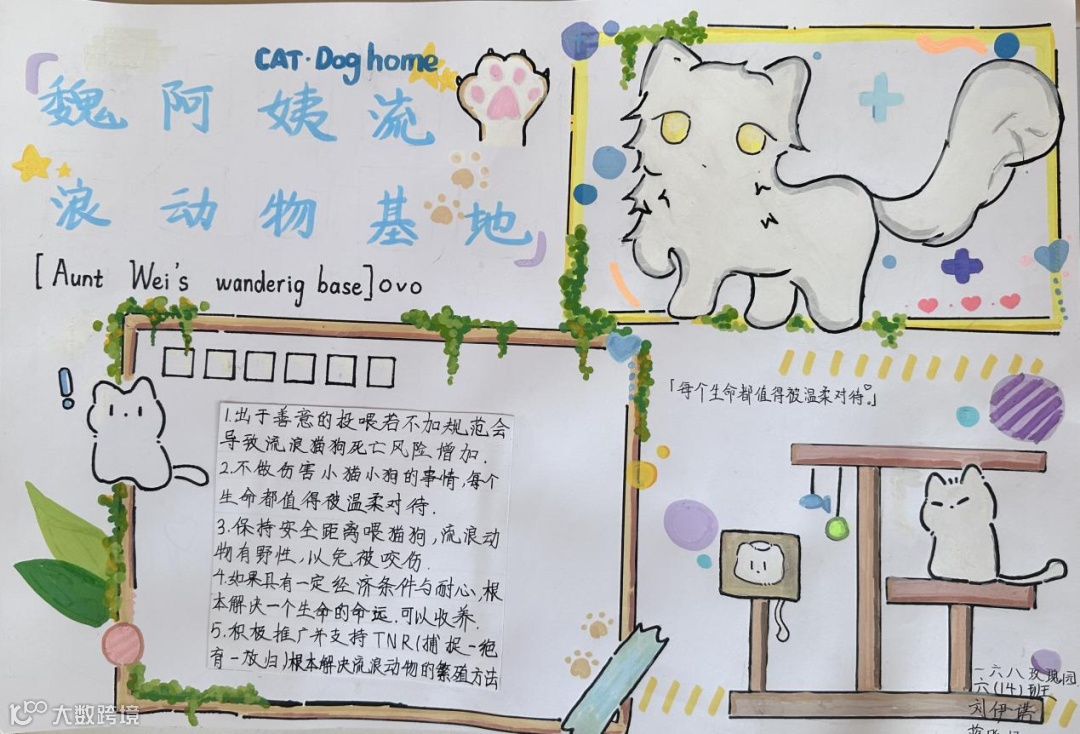 CAT·Dog home
魏阿姨流
浪动物基地
[Aunt Wei's wanderig base]ovo
1.出于善意的投喂若不加规范会
导致流浪猫狗死亡风险增加.
2.不做伤害小猫小狗的事情,每个
生命都值得被温柔对待.
3.保持安全距离喂猫狗,流浪动
物有野性,以免被咬伤.
4.如果具有一定经济条件与耐心,根
本解决一个生命的命运.可以收养.
5.积极推广并支持TNR(捕捉一绝
育一放归)根本解决流浪动物的繁殖方法
「每个生命都值得被温柔对待。」
一六八玫瑰园
六(14)班
刘伊诺
大数跨境